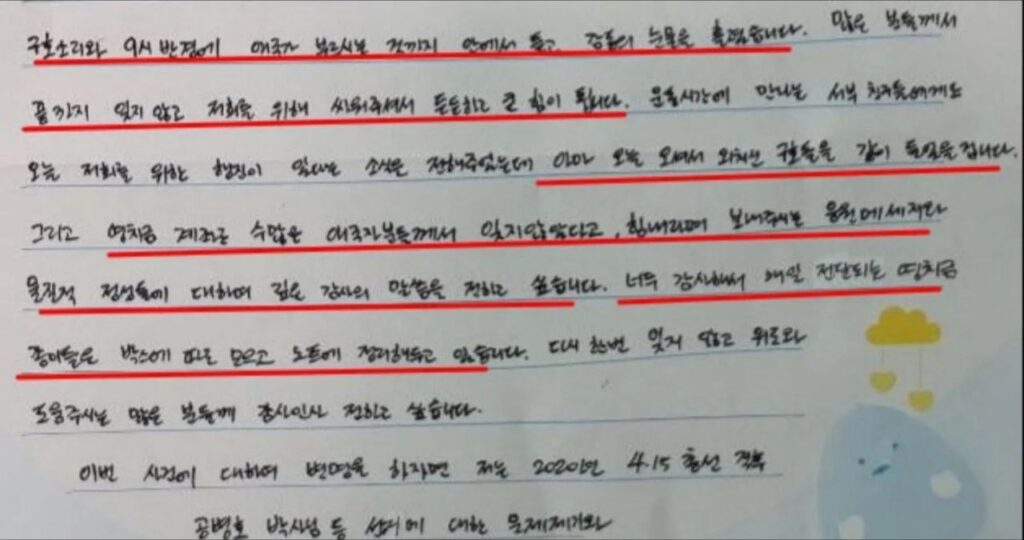 구호소리와 9시 반경에 애국가 부르시는 것까지 안에서 듣고 감동의 눈물을 흘렸습니다. 많은 분들께서
끝까지 잊지 않고 저희를 위해 싸워주셔서 든든하고 큰 힘이 됩니다. 운동시간에 만나는 서부 친구들에게도
오늘 저희를 위한 행진이 있다는 소식은 전해주었는데 아마 오늘 오셔서 외치신 구호들을 같이 들었을 겁니다.
그리고 영치금 계좌로 수많은 애국자분들께서 잊지않았다고, 힘내라며 보내주시는 응원메세지와
물질적 정성들에 대하여 깊은 감사의 말씀을 전하고 싶습니다. 너무 감사해서 매일 전달되는 영치금
종이들은 박스에 따로 모으고 노트에 정리해두고 있습니다. 다시 한번 잊지 않고 위로와
도움주시는 많은 분들께 감사인사 전하고 싶습니다.
이번 사건에 대하여 변명을 하자면 저는 2020년 4.15 총선 직후
공병호 박사님 등 선거에 대한 문제제기와